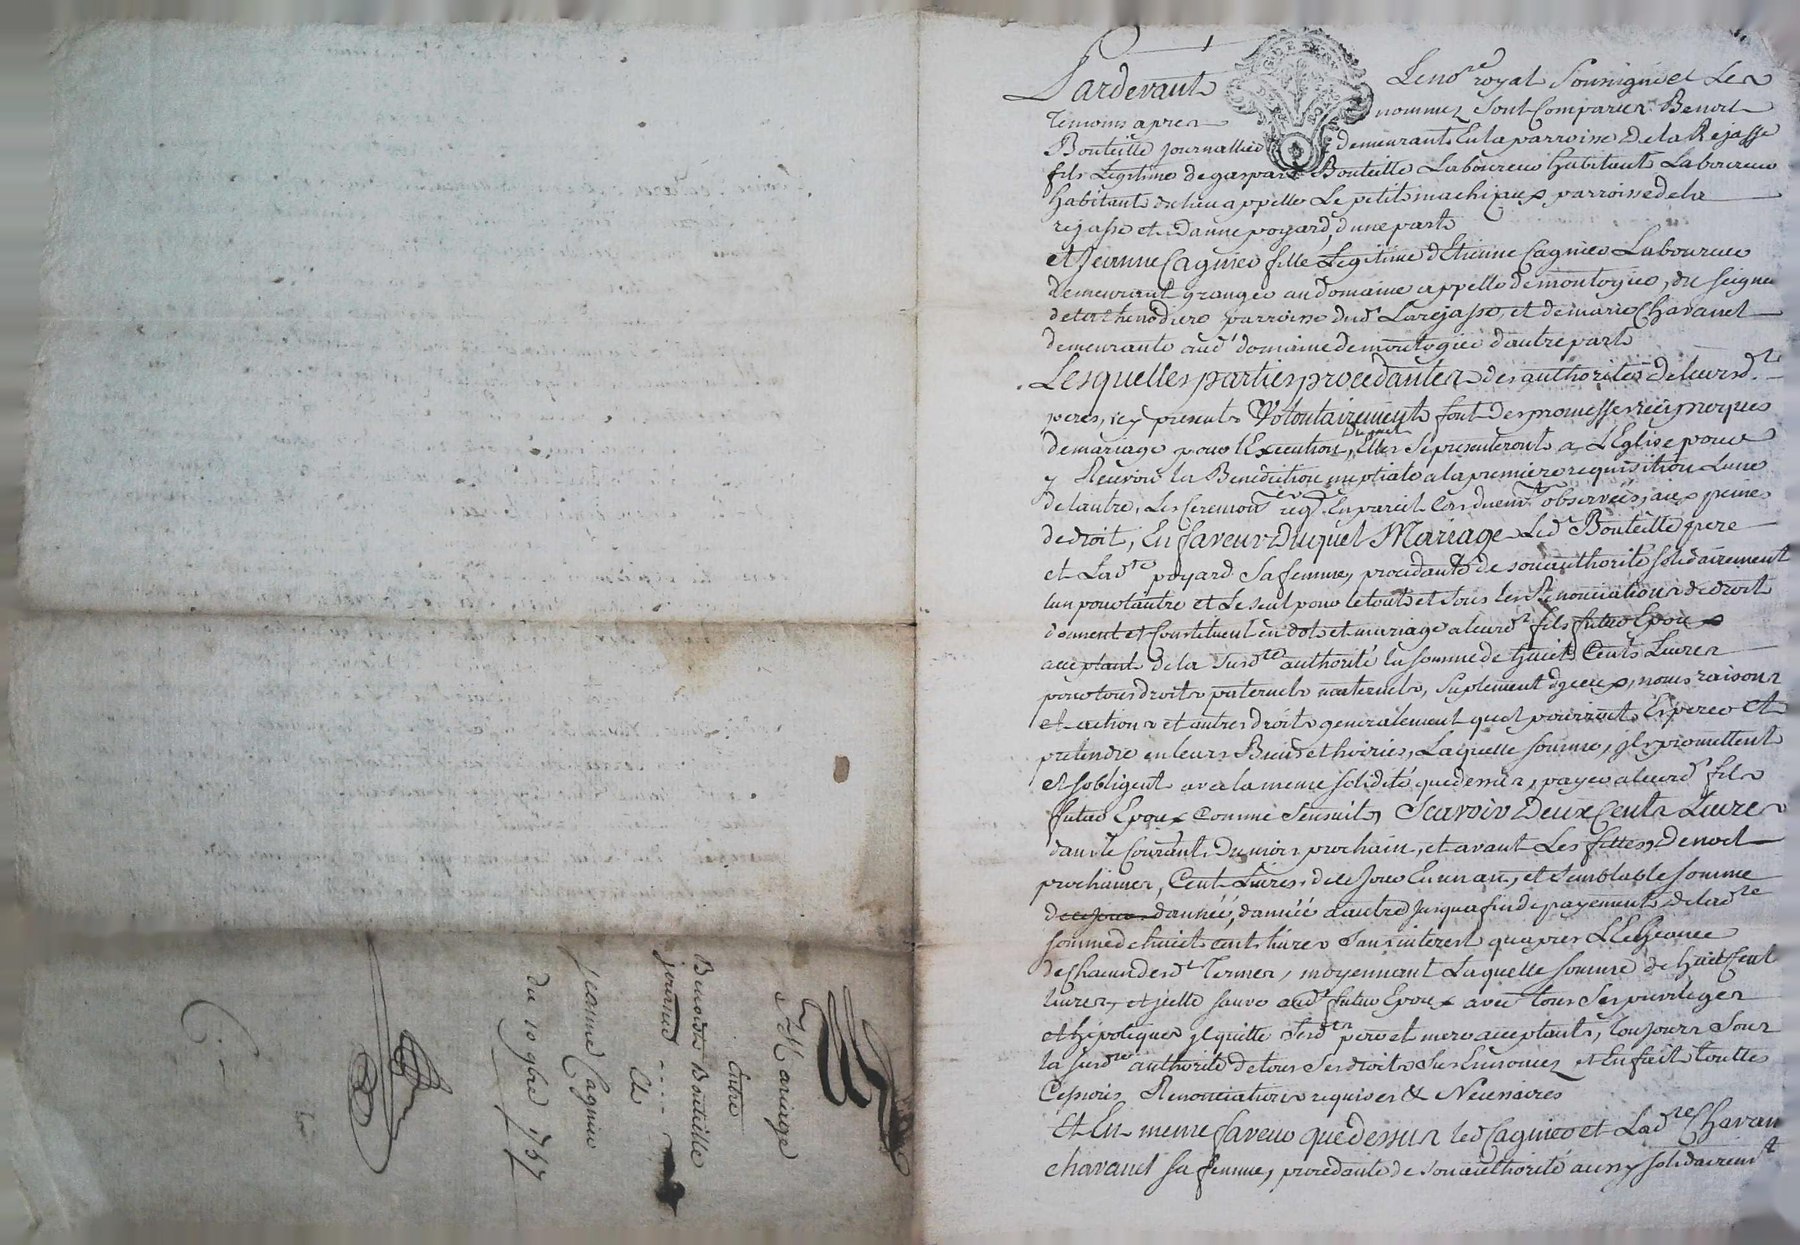 Mariage
Entre
Benoist Bouteille
journad
Et
jeanne Cagnieu
du 10 9bre 1757
Pardevant Le nore royal Soussigné et Les
temoins apres nommez Sont Comparus Benoit
Bouteille journallier demeurant En la parroisse de la Rejasse
fils Legitime de gaspard Bouteille Laboureur habitant Laboureur
habitant du lieu appellé Le petit machizaux parroisse de la
rejasse et danne poyard, d'une part
et Jeanne Cagnieu fille Legitime d'Etienne Cagnieu Laboureur
demeurant granger au domaine appellé de montogier, du seigneur
de parroisse dud Larejasse, et de marie Chavanel
demeurants aud domaine de montogier d'autre part
Lesquelles parties procedantes des authorités de leursd.
peres, icy presents Volontairement font des promesses reciproques
de mariage pour l'Execution Duquel Elles Se presenteront a L'Eglise pour
y Recevoir la Benediction nuptiale a la premiere requisition Lune
de lautre, Les Ceremons reqs En pareil Cas duemt observées, aux peines
de droit, En faveur Duquel Mariage Led Bouteille pere
et Lade poyard Sa femme, procedante de son authorité solidairement
lun pour lautre et Le seul pour le tout et sous les Renonciations de droit
donnent et Constituent en dot et mariage a leurd fils futur Epoux
acceptant de la Susdte authorité la somme de huict Cents Livres
pour tous droits paternels maternels, suplement d'yceux, noms raisons
et actions et autres droits generalement quel pourroit Esperer Et
pretendre en leurs Biens et hoiries, Laquelle somme, jls promettent
et sobligent avec la meme solidité que dessus, payer a leurd fils
futur Epoux Comme Sensuit, Scavoir Deux Cents Livres
dans le Courant Du mois prochain, et avant Les fettes de noel
prochaines, Cent Livres de ce jour En un an, et Semblable somme
de ce jour d'année, d'année a autre jusqua fin de payement de lade
somme de huict cents livres sans interest quapres LEcheance
de Chacun desd Termes, moyennant Laquelle somme de huit Cent
livres, et jcelle sauve aud futur Epoux avec tous ses privileges
et hipoteques jl quitte Sesdts pere et mere acceptants, toujours sous
la susdte authorité de tous Ses droits Sus Enoncez et En fait touttes
Cessions Renonciations requises & Necessaires
Et En meme faveur que dessus led Cagnieu et Lade Chavan
chavanel sa femme, procedante de son authorité aussy solidairemt